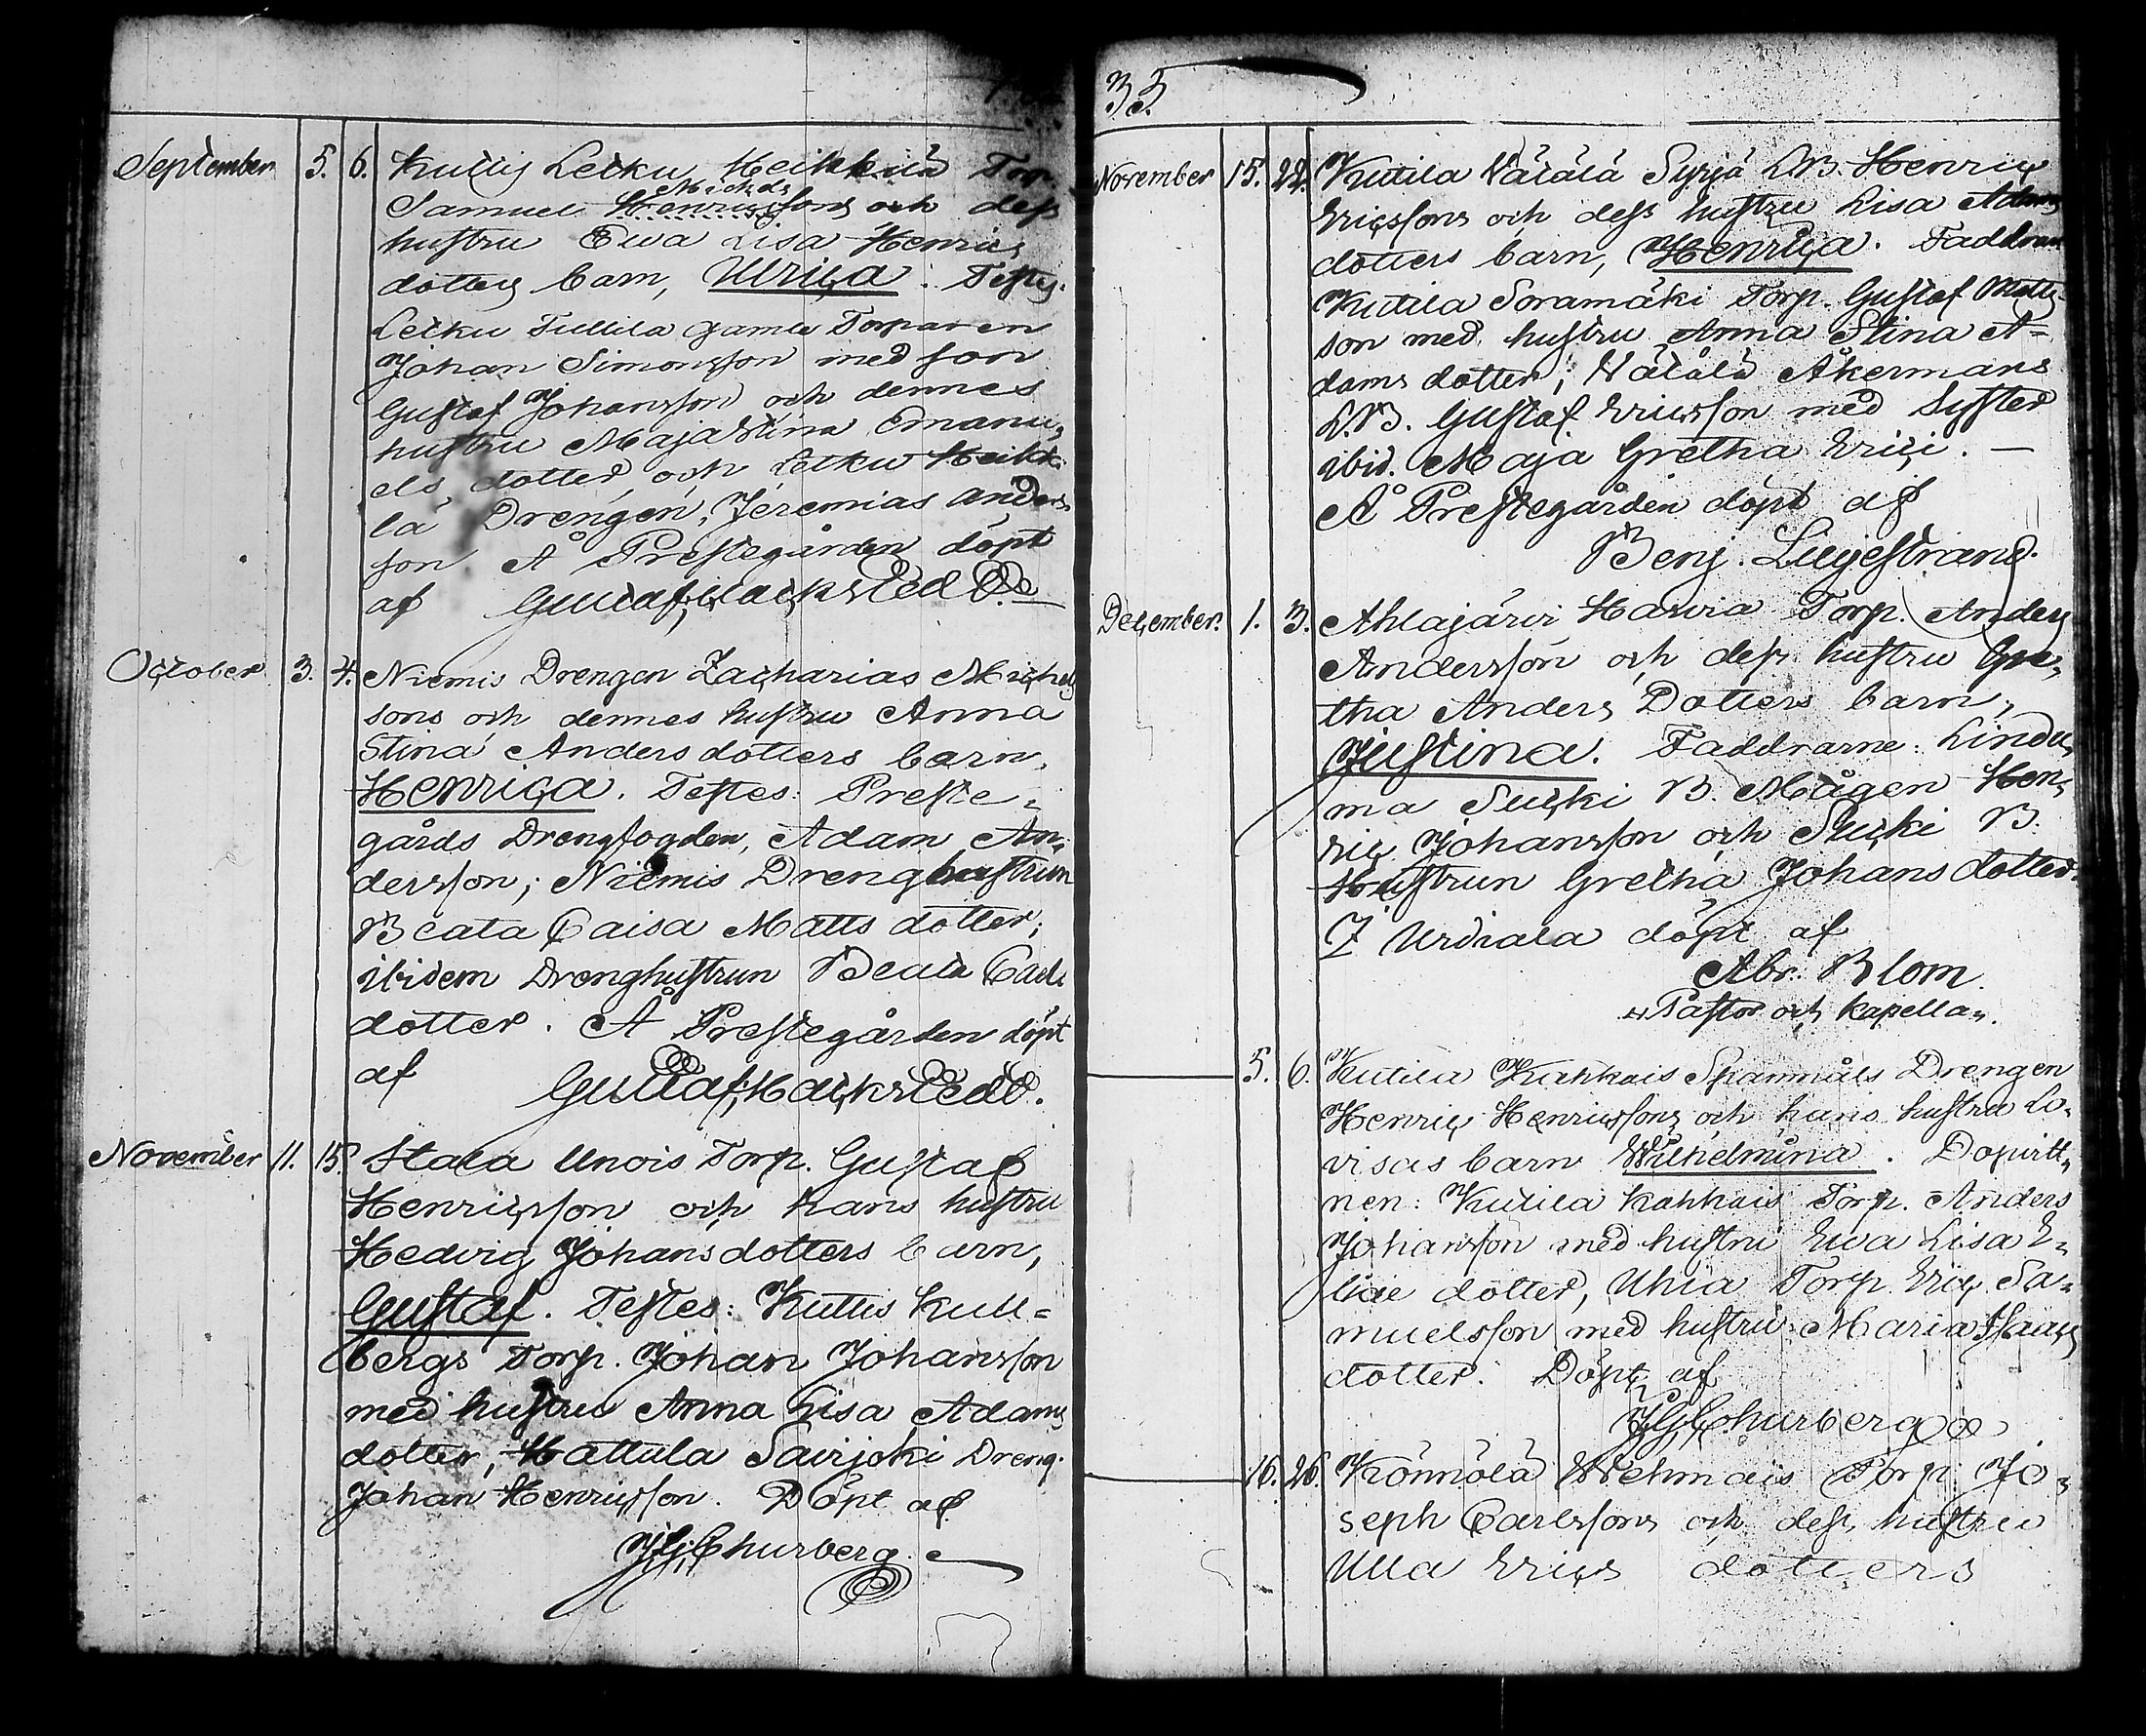 September 5. 6. Kullis Letku Heikkilä Torp.
Michels
Samuel Henricssons och dess
hustru Ewa Lisa Henrics
dotters barn, Ulrica. Testes.
Letku Tullila gamle Torparen
Johan Simonsson med son
Gustaf Johansson och dennes
hustru Maja Stina Emanu„
els dotter, och Letku Heikki
lä Drengen, Jeremias Anders
son. Å Prestegården döpt
af Gustaf Hackstedt
October 3. 4. Niemis Drengen Zacharias Michels
sons och dennes hustru Anna
Stina Andersdotters barn,
Henrica. Testes: Preste„
gårds Drengfogden, Adam An„
dersson; Niemis Dreng hustrun
Beata Caisa Matts dotter;
ibidem Drenghustrun Beata Carls
dotter. Å Prestegården döpt
af Gustaf Hackstedt.
November 11. 15. Stala Unois Torp. Gustaf
Henricsson och hans hustru
Hedvig Johansdotters barn,
Gustaf. Testes: Kullis Kull=
bergs Torp. Johan Johansson
med hustru Anna Lisa Adams
dotter, Hattula Sairjoki Dreng.
Johan Henricsson. Döpt af
J.G. Churberg
35.
November 15. 22. Kutila Wälälä Syrjä L.B. Henric
Ericssons och dess hustru Lisa Adams
dotters barn, Henrica. Faddrar
Kutila Soramäki Torp. Gustaf Matts-
son med hustru Anna Stina A=
dams dotter; Wälälä Åkermans
L.B. Gustaf Ericsson med Syster
ibid. Maja Gretha Erici. —
Å Prestegården döpt af
Benj. Liljestrand.
December. 1. 3. Ahlajärvi Harvia Torp. Anders
Andersson och dess hustru Gre„
tha Anders Dotters barn,
Justina. Faddrarne: Lindu„
ma Sucki B. Mågen Hen„
ric Johansson och Sucki B.
Hustrun Gretha Johansdotter.
I Urdiala döpt af
Abr. Blom.
Pastor och Kapellan.
5. 6. Kutila Kahkais Spannmåls Drengen
Henric Henricssons och hans hustru Lo„
visas barn Wilhelmina. Dopvitt„
nen: Kutila Kahkais Torp. Anders
Johansson med hustru Ewa Lisa E„
liae dotter, Uhia Torp. Eric Sa=
muelsson med hustru Maria Isaacs
dotter. Döpt af
J.G. Churberg
16. 26. Könnölä Wehmais Torp. Jo„
seph Carlssons och dess hustru
Ulla Erics dotters